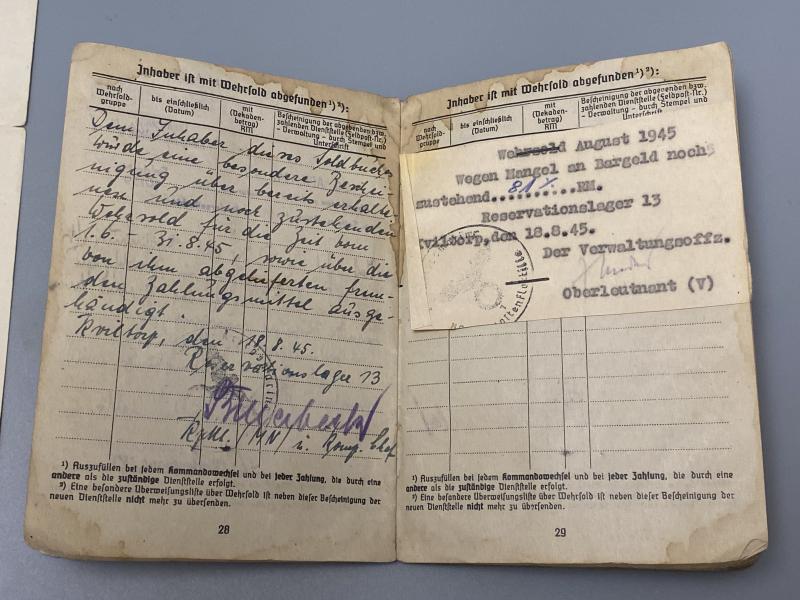 Inhaber ist mit Wehrsold abgefunden ¹) ²):
nach Wehrsold-gruppe
bis einschließlich (Datum)
mit (Dekaden-betrag) RM
Bescheinigung der abgebenden bzw. zahlenden Dienststelle (Feldpost-Nr.) - Verwaltung - durch Stempel und Unterschrift
Dem Inhaber dieses Soldbuches
wurde eine besondere Beschei-
nigung über bereits erhalte-
nen und noch zustehenden
Wehrsold für die Zeit vom
1.6. – 31.8.45, sowie über die
von ihm abgelieferten frem-
den Zahlungsmittel ausge-
händigt.
Kviltorp, den 18.8.45.
Reservationslager 13
u. Komp. Chef
¹) Auszufüllen bei jedem Kommandowechsel und bei jeder Zahlung, die durch eine
andere als die zuständige Dienststelle erfolgt.
²) Eine besondere Überweisungsliste über Wehrsold ist neben dieser Bescheinigung der
neuen Dienststelle nicht mehr zu übersenden.
28
Inhaber ist mit Wehrsold abgefunden ¹) ²):
nach Wehrsold-gruppe
bis einschließlich (Datum)
mit (Dekaden-betrag) RM
Bescheinigung der abgebenden bzw. zahlenden Dienststelle (Feldpost-Nr.) - Verwaltung - durch Stempel und Unterschrift
Wehrsold August 1945
Wegen Mangel an Bargeld noch
zustehend..........RM.
Reservationslager 13
Kviltorp,den 18.8.45.
Der Verwaltungsoffz.
Oberleutnant (V)
¹) Auszufüllen bei jedem Kommandowechsel und bei jeder Zahlung, die durch eine
andere als die zuständige Dienststelle erfolgt.
²) Eine besondere Überweisungsliste über Wehrsold ist neben dieser Bescheinigung der
neuen Dienststelle nicht mehr zu übersenden.
29